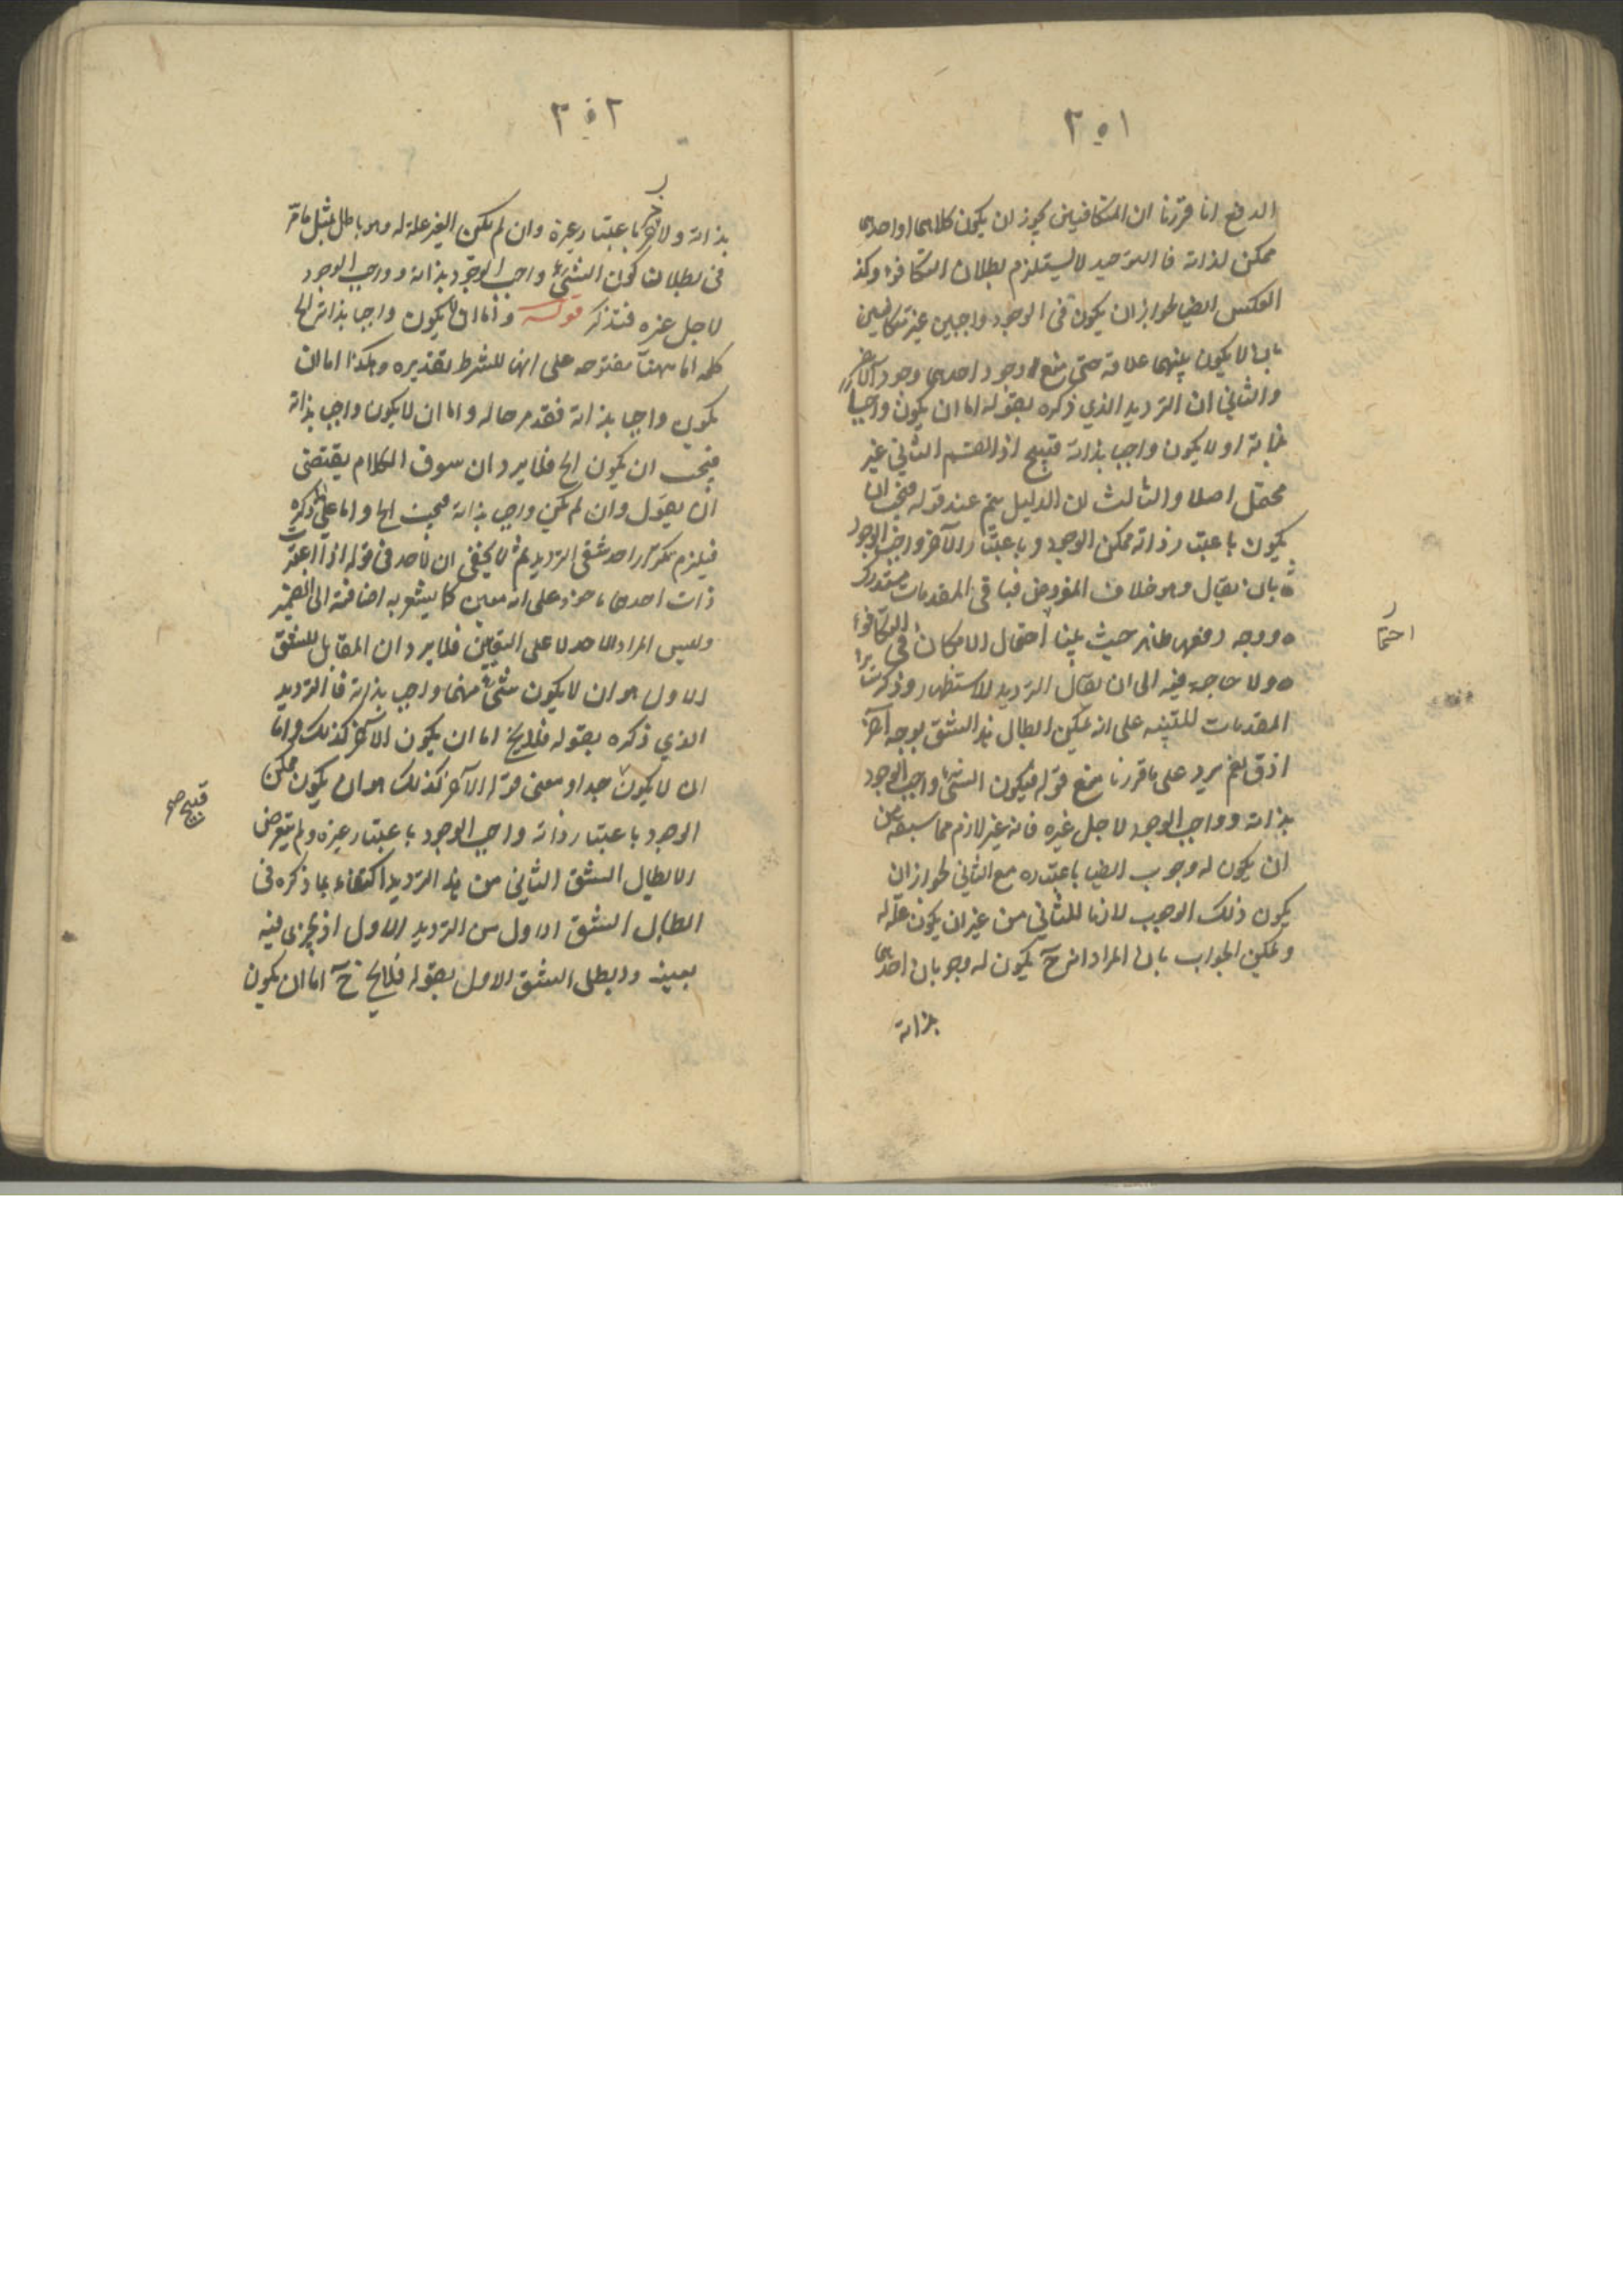 ٣٥١
الدفع انا قررنا ان المتكافيين يجوز ان يكون كلاهما او احدهما
ممكن لذاته فالتوحيد لا يستلزم بطلان التكافؤ وكذ
العكس ايضا لجواز ان يكون فى الوجود واجبين غير متكافيين
بان لا يكون بينهما علاقة حتى يمنع وجود احدهما وجود الآخر
والثاني ان الترديد الذي ذكره بقوله اما ان يكون واجبا
بذاته او لا يكون واجب بذاته قبيح اذ القسم الثاني غير
محتمل اصلا والثالث ان الدليل يتم عند قوله فيجب ان
يكون باعتبار ذاته ممكن الوجود وباعتبار الآخر واجب الوجود
بان يقال وهو خلاف المفروض فباقى المقدمات مستدرك
ووجه دفعها ظاهر حيث بينا احتمال الامكان فى التكافؤ
احتما
ولا حاجة فيه الى ان يقال الترديد للاستظهار وذكرت
المقدمات للتنبيه على انه يمكن ابطال هذا الشق بوجه آخر
اذق نعم يرد على ما قررنا منع قوله فيكون الشئ واجب الوجود
بذاته وواجب الوجود لاجل غيره فانه غير لازم مما سبق من
ان يكون له وجوب ايضا باعتباره مع الثاني لجواز ان
يكون ذلك الوجوب لازما للثاني من غير ان يكون علة له
ويمكن الجواب بان المراد انه ح يكون له وجوبان احدهما
بذاته
٣٥٢
بذاته والآخر باعتبار غيره وان لم يكن الغير علة له وهو باطل بمثل ما مر
فى بطلان كون الشئ واجب الوجود بذاته وواجب الوجود
لاجل غيره فتذكر قوله واما ان لا يكون واجبا بذاته الخ
كلمة اما ههنا مفتوحة على انها للشرط تقديره وهكذا اما ان
يكون واجبا بذاته فقد مر حاله واما ان لا يكون واجب بذاته
فيجب ان يكون الخ فلا يرد ان سوق الكلام يقتضى
ان يقول وان لم يكن واجب بذاته فيجب الخ واما على ما ذكره
فيلزم تكرار احد شقى الترديد ثم لا يخفى ان الاحد فى قوله اذا اعتبرت
ذات احدهما ماخوذ على انه معين كما يشعر به اضافته الى الضمير
وليس المراد الاحد لا على التعيين فلا يرد ان المقابل للشق
الاول هو ان لا يكون شئ منهما واجب بذاته فالترديد
الذي ذكره بقوله فلا يخ اما ان يكون الآخر كذلك واما
ان لا يكون جدا ومعنى قوله الآخر كذلك هو ان يكون ممكن
قبيح صح
الوجود باعتبار ذاته واجب الوجود باعتبار غيره ولم يتعرض
لابطال الشق الثاني من هذا الترديد اكتفاء بما ذكره فى
ابطال الشق الاول من الترديد الاول اذ يجرى فيه
بعينه وابطل الشق الاول بقوله فلا يخ ح اما ان يكون